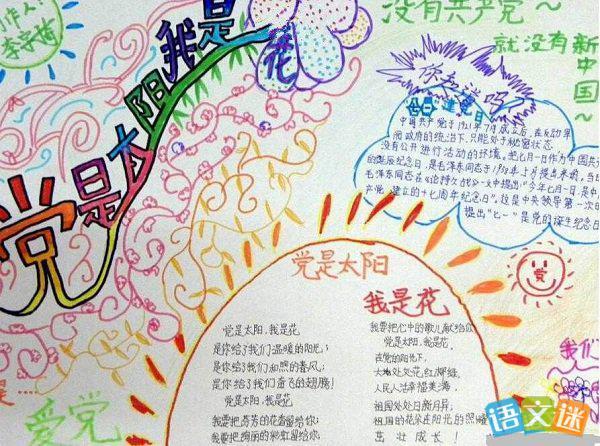 小作人:
党是太阳我是花
没有共产党~
就没有新
中国~
你知道吗
七一建党日
中国共产党于1921年7月成立后,在反动军
阀政府的统治下,只能处于秘密状态,
没有公开进行活动的环境,把七月一日作为中国共
的诞辰纪念日,是毛泽东同志于1938年5月提出来的,当时
毛泽东同志在《论持久战》一文中提出"今年七月一日,是中
产党建立的十七周年纪念日",这是中央领导第一次
提出"七一"是党的诞生纪念日
党是太阳
我是花
党是太阳,我是花
是你给了我们温暖的阳光;
是你给了我们和煦的春风;
是你给了我们奋飞的翅膀;
党是太阳,我是花
我要把芬芳的花香留给你;
我要把绚丽的彩虹留给你;
我要把心中的歌儿献给你
党是太阳,我是花,
在党的阳光下,
大地处处花红柳绿,
人民人活幸福美满,
祖国处处日新月异;
祖国的花朵在阳光的照耀
茁壮成长
党
我们
爱党
语文迷